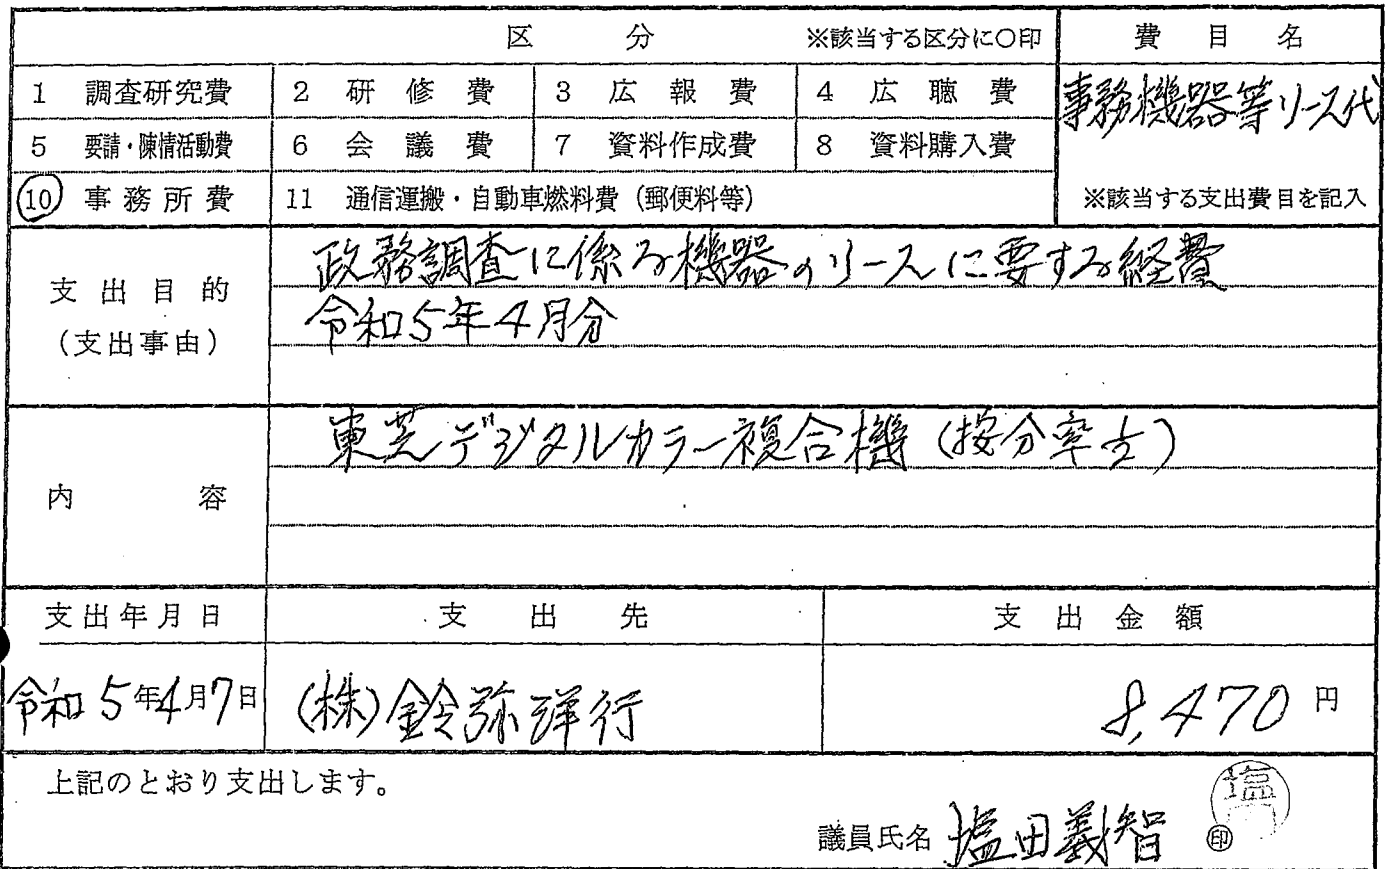 区 分 ※該当する区分に○印 費 目 名
1 調査研究費 2 研 修 費 3 広 報 費 4 広 聴 費
事務機器等リース代
5 要請・陳情活動費 6 会 議 費 7 資料作成費 8 資料購入費
10 事 務 所 費 11 通信運搬・自動車燃料費（郵便料等） ※該当する支出費目を記入
支 出 目 的
（支出事由）
政務調査に係る機器のリースに要する経費
令和5年4月分
内 容
東芝デジタルカラー複合機（按分率
支出年月日 支 出 先 支 出 金 額
令和5年4月7日 (株)鈴弥洋行 8,470 円
上記のとおり支出します。
議員氏名 塩田義智 印